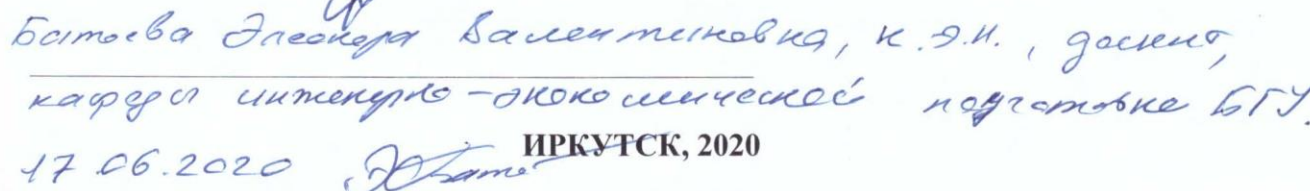 Батоева Элеонора Валентиновна, к.э.н., доцент,
кафедры инженерно-экономической подготовки БГУ.
ИРКУТСК, 2020
17.06.2020